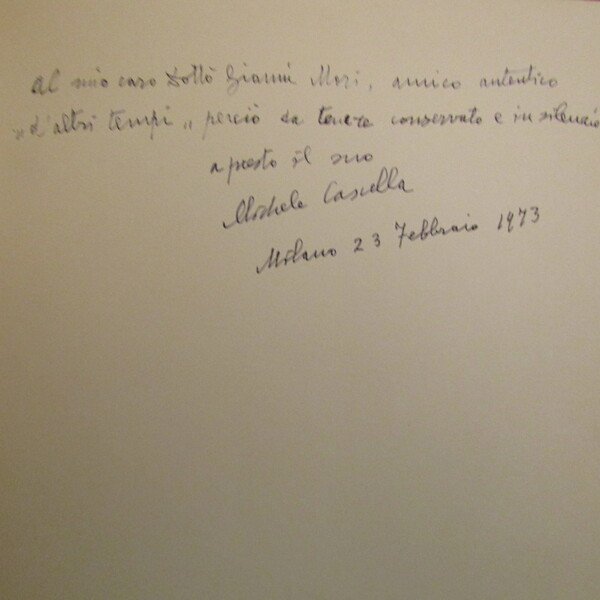 Al mio caro Dotto Gianni Mori, amico autentico
„d'altri tempi„ perciò da tenere conservato e in silenzio
a presto il suo
Michele Cascella
Milano 23 Febbraio 1973